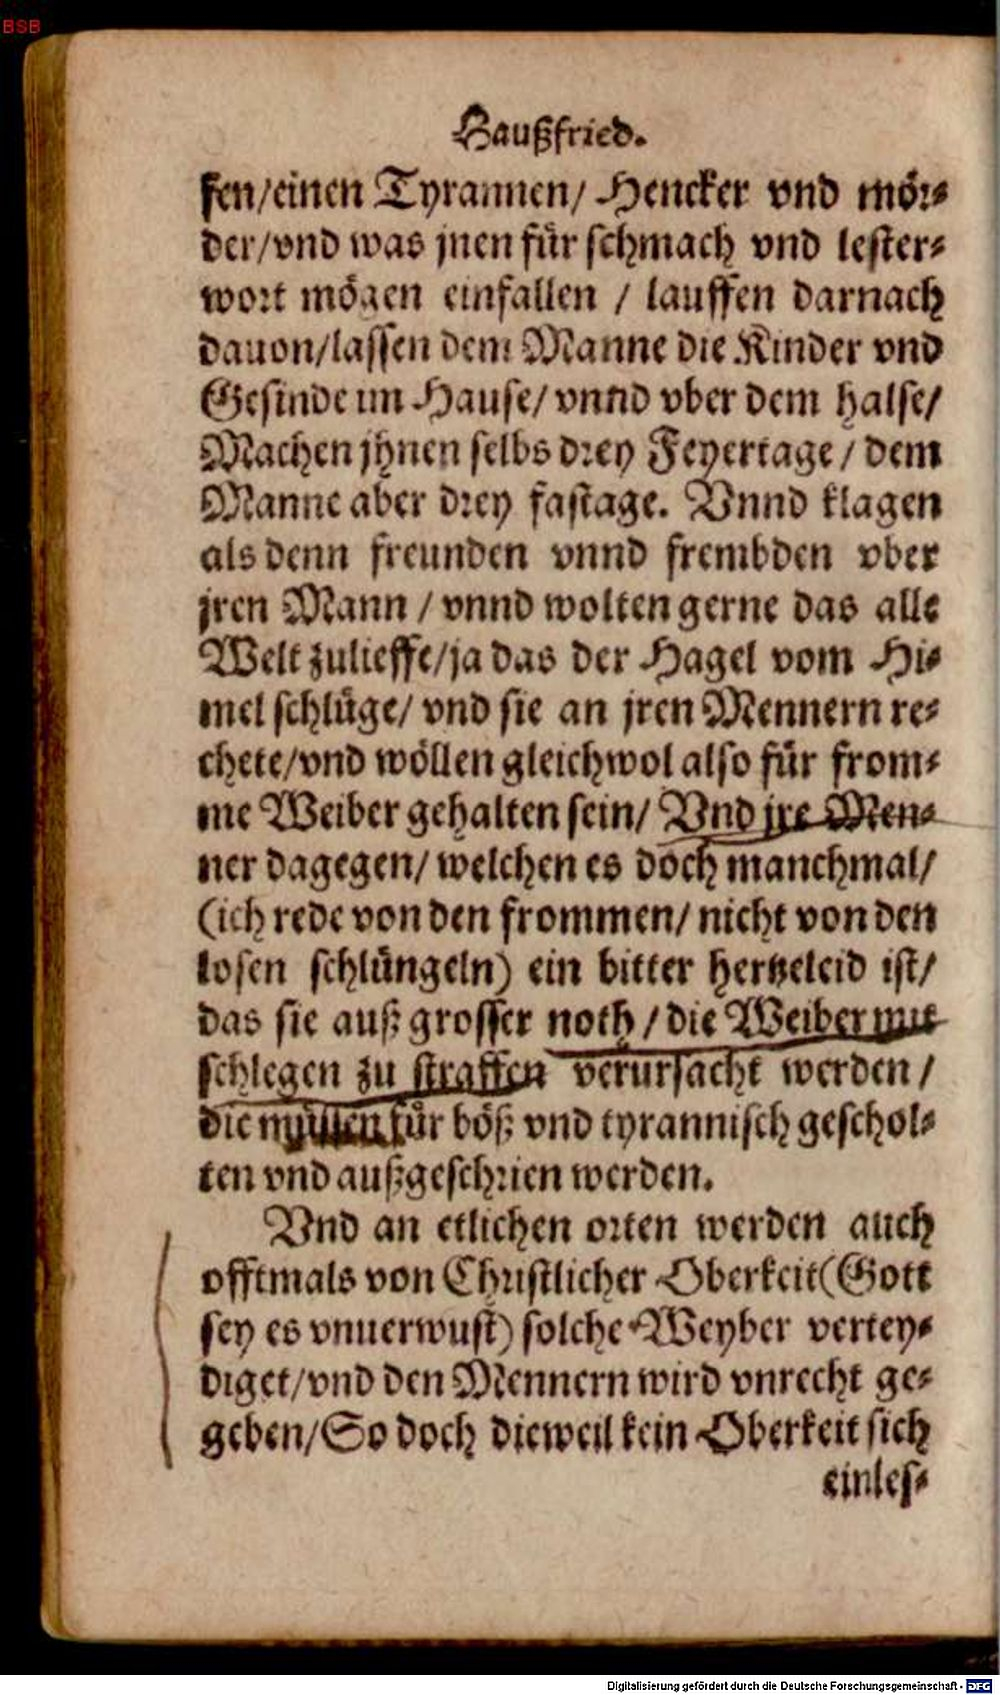 BSB
Haußfried.
fen/einen Tyrannen/ Hencker vnd mör-
der/vnd was jnen für schmach vnd lester-
wort mögen einfallen / lauffen darnach
dauon/lassen dem Manne die Kinder vnd
Gesinde im Hause/ vnnd vber dem halse/
Machen jhnen selbs drey Feyertage / dem
Manne aber drey fastage. Vnnd klagen
als denn freunden vnnd frembden vber
jren Mann / vnnd wolten gerne das alle
Welt zulieffe/ja das der Hagel vom Hi-
mel schlüge/ vnd sie an jren Mennern re-
chete/vnd wöllen gleichwol also für from-
me Weiber gehalten sein/ Vnd jre Men-
ner dagegen/ welchen es doch manchmal/
(ich rede von den frommen/ nicht von den
losen schlüngeln) ein bitter hertzeleid ist/
das sie auß grosser noth / die Weiber mit
schlegen zu straffen verursacht werden /
die müssen für böß vnd tyrannisch geschol-
ten vnd außgeschrien werden.
Vnd an etlichen orten werden auch
offtmals von Christlicher Oberkeit (Gott
sey es vnuerwust) solche Weyber vertey-
diget/vnd den Mennern wird vnrecht ge-
geben/ So doch dieweil kein Oberkeit sich
einles-
Digitalisierung gefördert durch die Deutsche Forschungsgemeinschaft - DFG